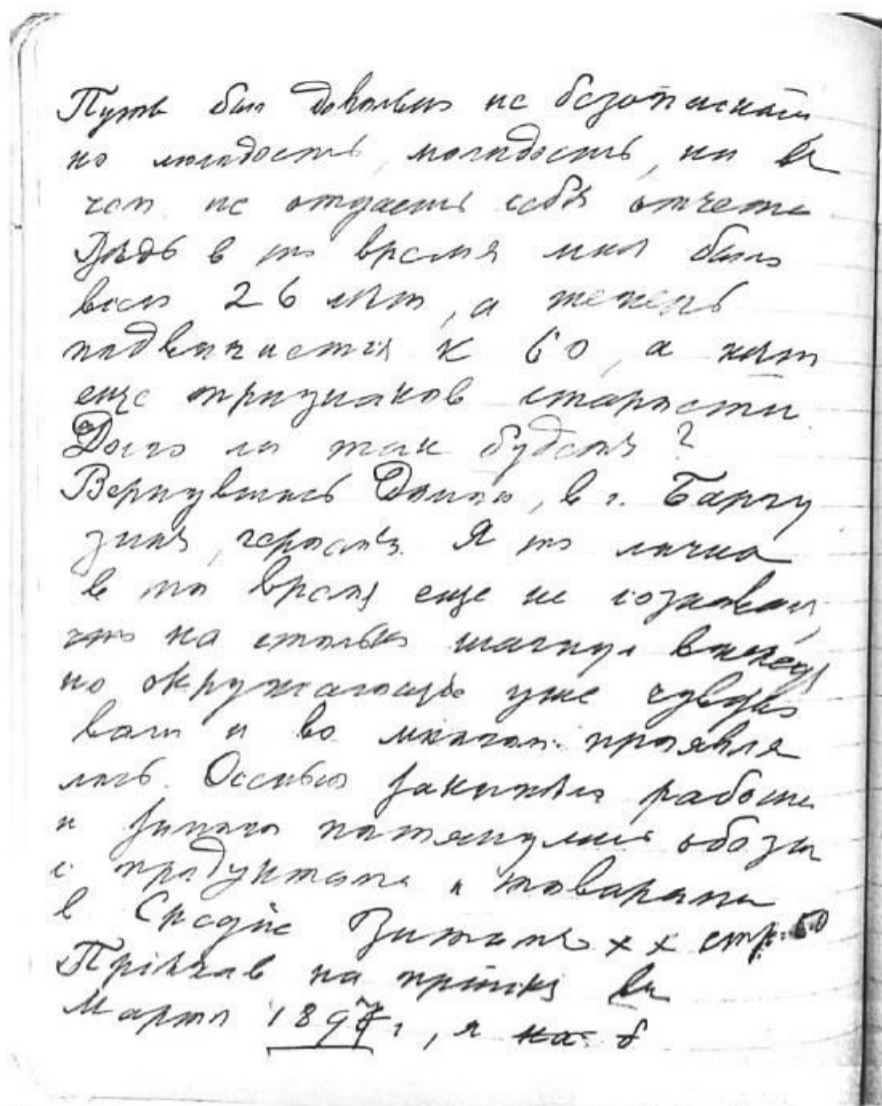 Путь был довольно не безопасный
но молодость, молодость, ни в
чем не отдаешь себя отчета
Ведь в то время мне было
всего 26 лѣт, а теперь
подвигается к 60, а нѣт
еще признаков старости.
Долго ли так будет?
Вернувшись Домой, в г. Баргу
зинъ, героемъ. Я то лично
в то время еще не сознавал,
что на столько шагнул вперед,
но окружающие уже чувство
вали и во многом проявля
лось. Осенью закипѣла работа
и зимою потянулись обозы
с продуктами и товарами
в Средне Витимъ х х стр. 50
Пріѣхав на прииски в
Марте 1897 г, я на б